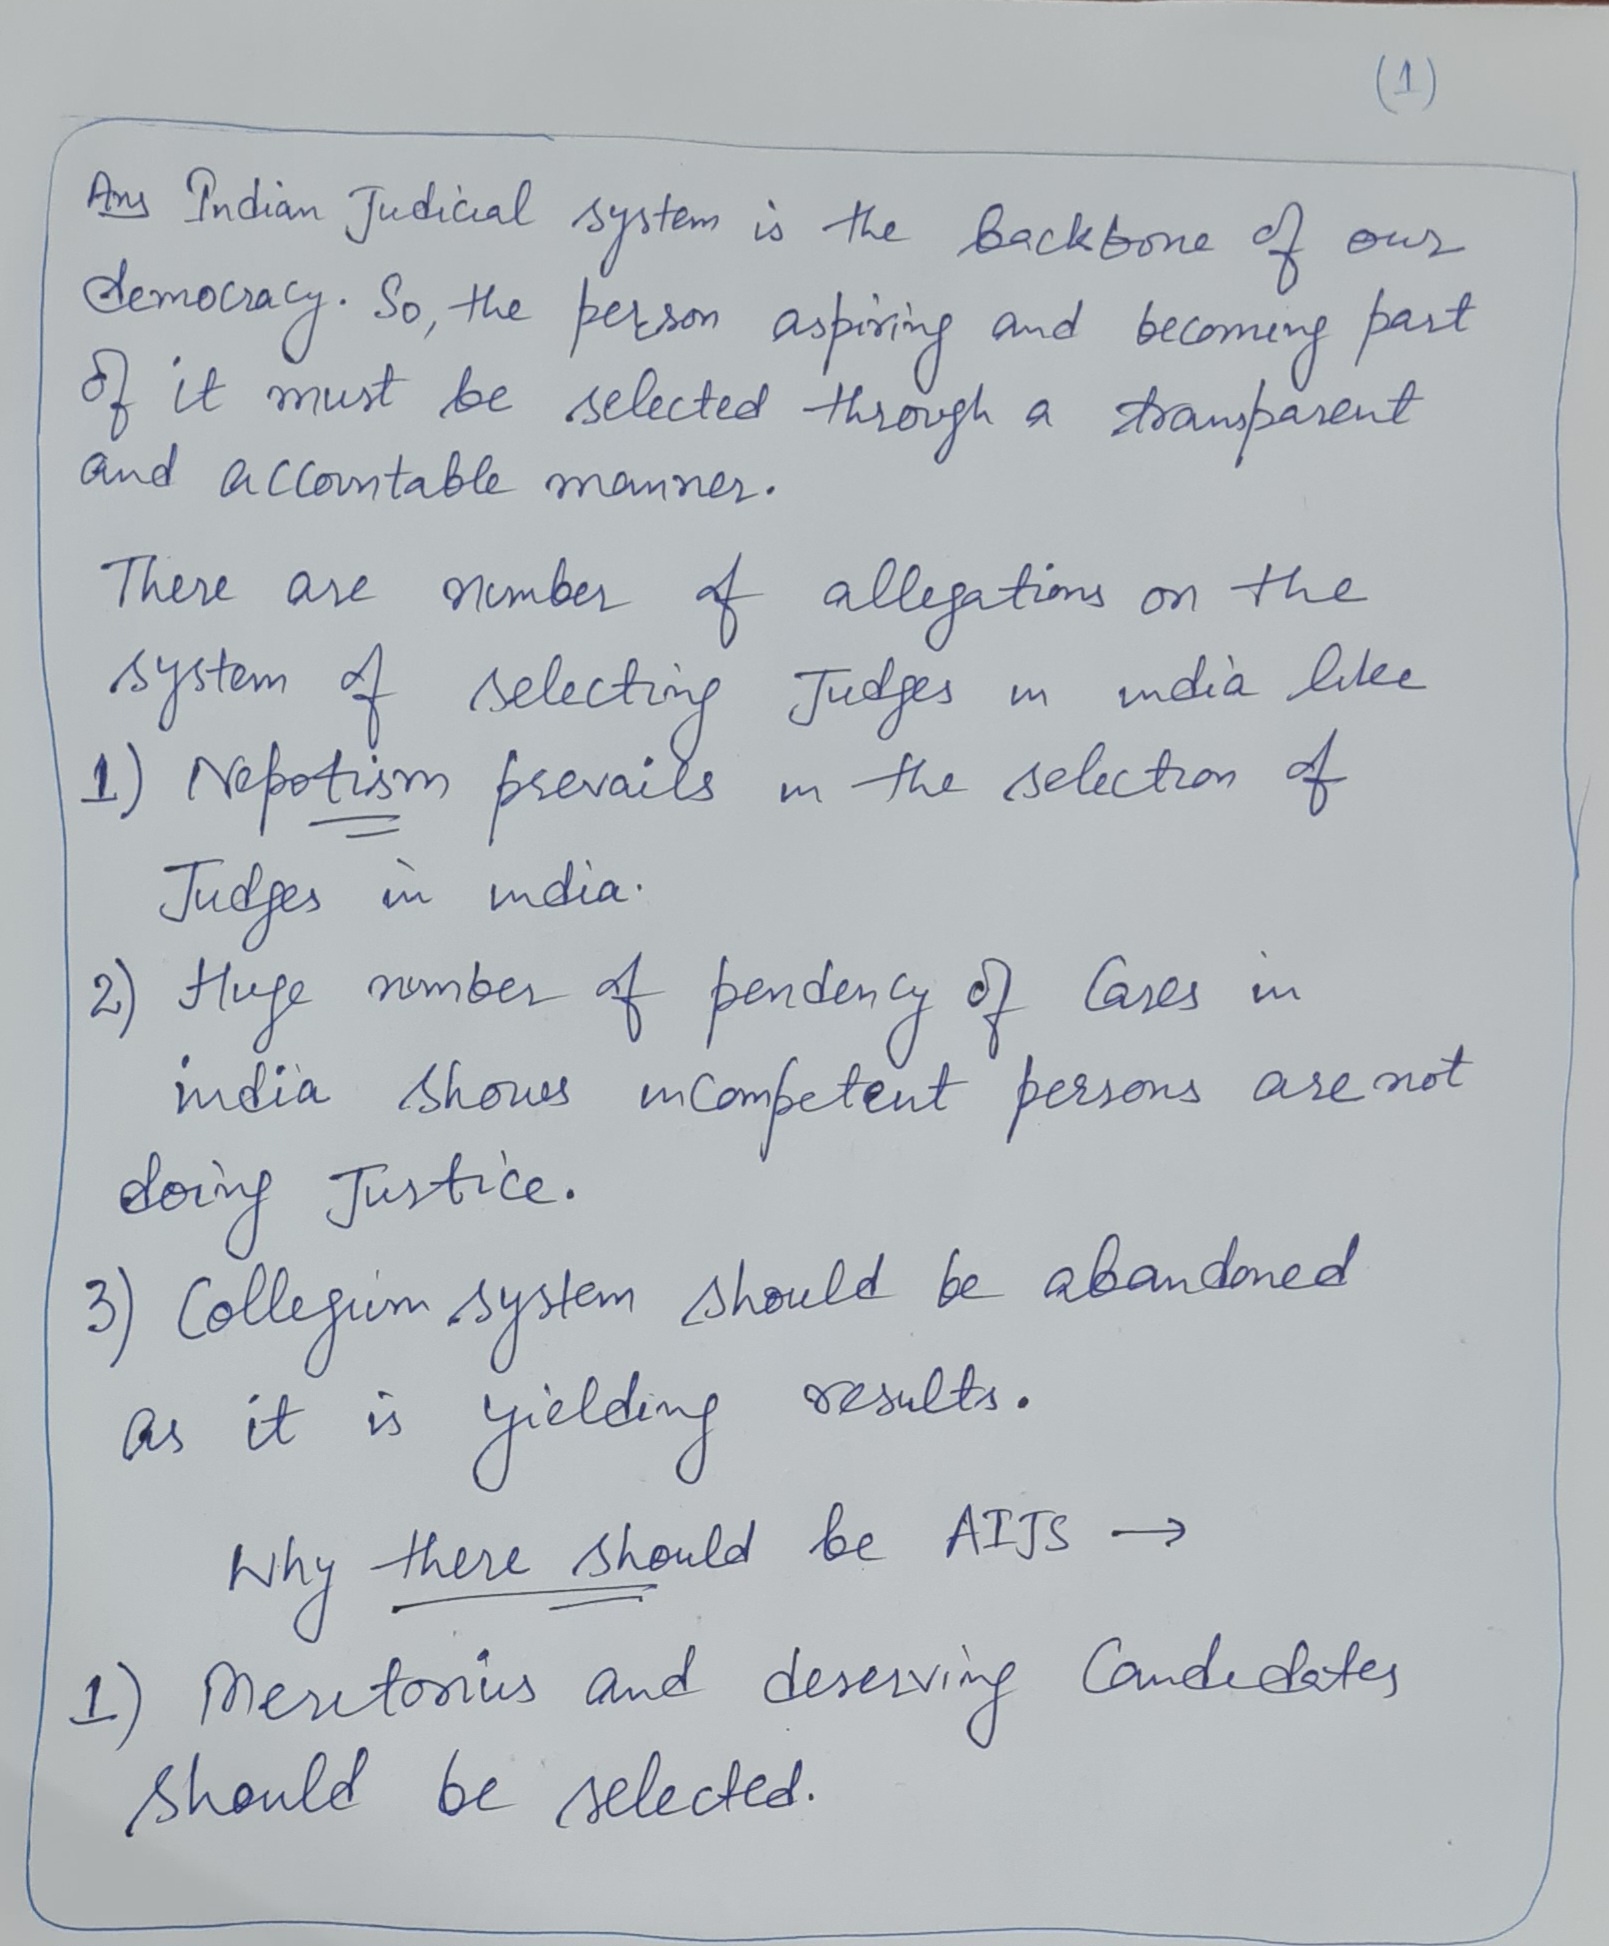 (1)
Ans Indian Judicial system is the backbone of our
democracy. So, the person aspiring and becoming part
of it must be selected through a transparent
and accountable manner.
There are number of allegations on the
system of selecting Judges in india like
1) Nepotism prevails in the selection of
Judges in india.
2) Huge number of pendency of Cases in
india shows incompetent persons are not
doing Justice.
3) Collegium system should be abandoned
as it is yielding results.
Why there should be AIJS →
1) Meritorius and deserving Candidates
should be selected.